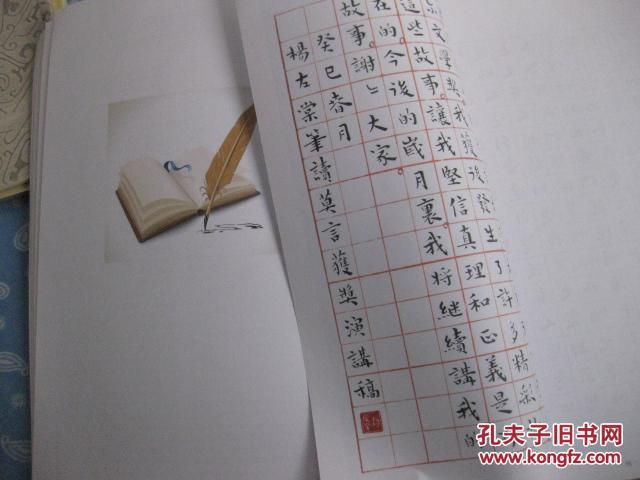 文學獎我獲後發生了許多精彩
這些故事。讓我堅信真理和正義是
在的。今後的歲月裏。我將繼續講我的
故事。謝〻大家。
癸巳春月
楊左棠筆讀莫言獲獎演講稿
孔夫子旧书网
www.kongfz.com